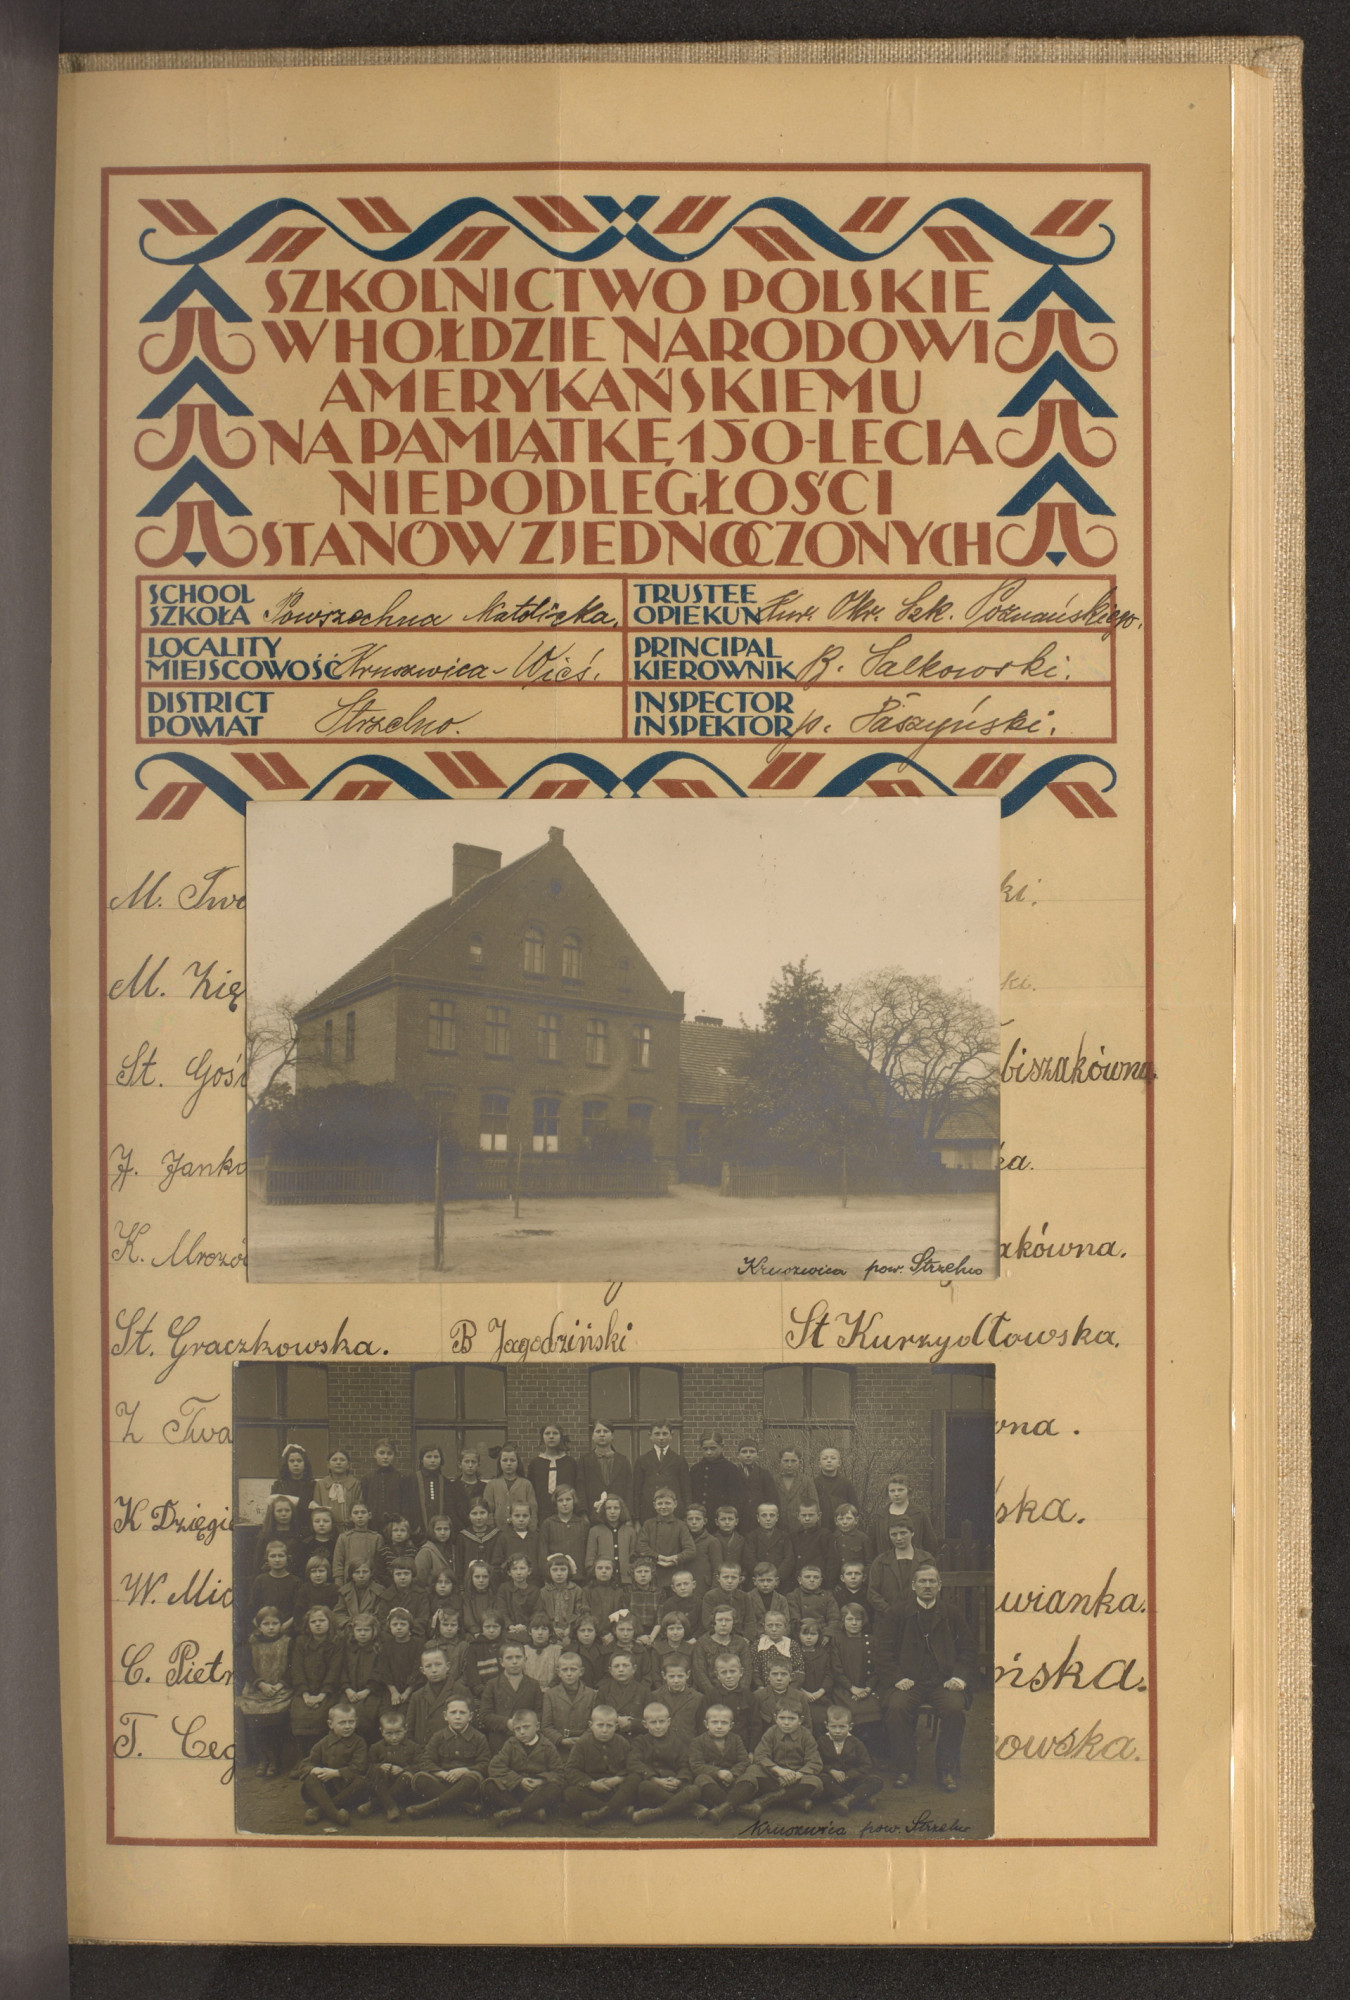 SZKOLNICTWO POLSKIE
W HOŁDZIE NARODOWI
AMERYKAŃSKIEMU
NA PAMIĄTKĘ 150-LECIA
NIEPODLEGŁOŚCI
STANÓW ZJEDNOCZONYCH
SCHOOL
SZKOŁA Powszechna Katolicka.
TRUSTEE
OPIEKUN Kur. Okr. Szk. Poznańskiego.
LOCALITY
MIEJSCOWOŚĆ Kruszwica-Wieś.
PRINCIPAL
KIEROWNIK B. Salkowski.
DISTRICT
POWIAT Strzelno.
INSPECTOR
INSPEKTOR p. Paszyński.
M. Twa ki.
M. Zię ki.
St. Goś biszakówna.
J. Janko ka.
K. Mrozó akówna.
Kruszwica pow. Strzelno
St. Graczkowska. B Jagodziński St Kurzydłowska.
Z Twa wna.
K Dzięgie ska.
W. Mic wianka.
C. Piet ńska.
T. Ceg owska.
Kruszwica pow. Strzelno